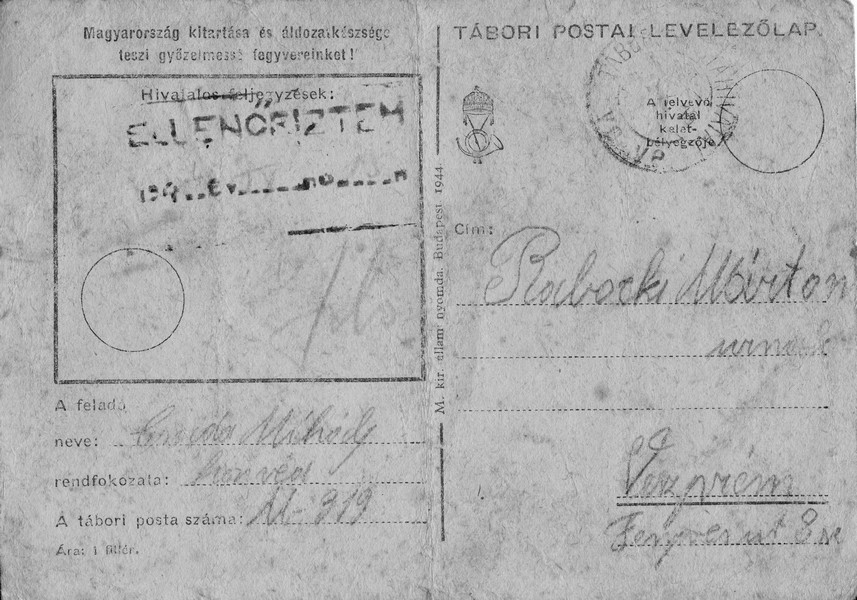 Magyarország kitartása és áldozatkészsége
teszi győzelmessé fegyvereinket!
Hivatalos feljegyzések:
ELLENŐRIZTEM
194
A feladó
neve: Mihály
rendfokozata: honvéd
A tábori posta száma: M-319
Ára: 1 fillér.
M. kir. állami nyomda. Budapest 1944.
TÁBORI POSTAI LEVELEZŐLAP.
A felvevő
hivatal
kelet-
bélyegzője
Cím:
Raboczki Márton
urnak
Veszprém